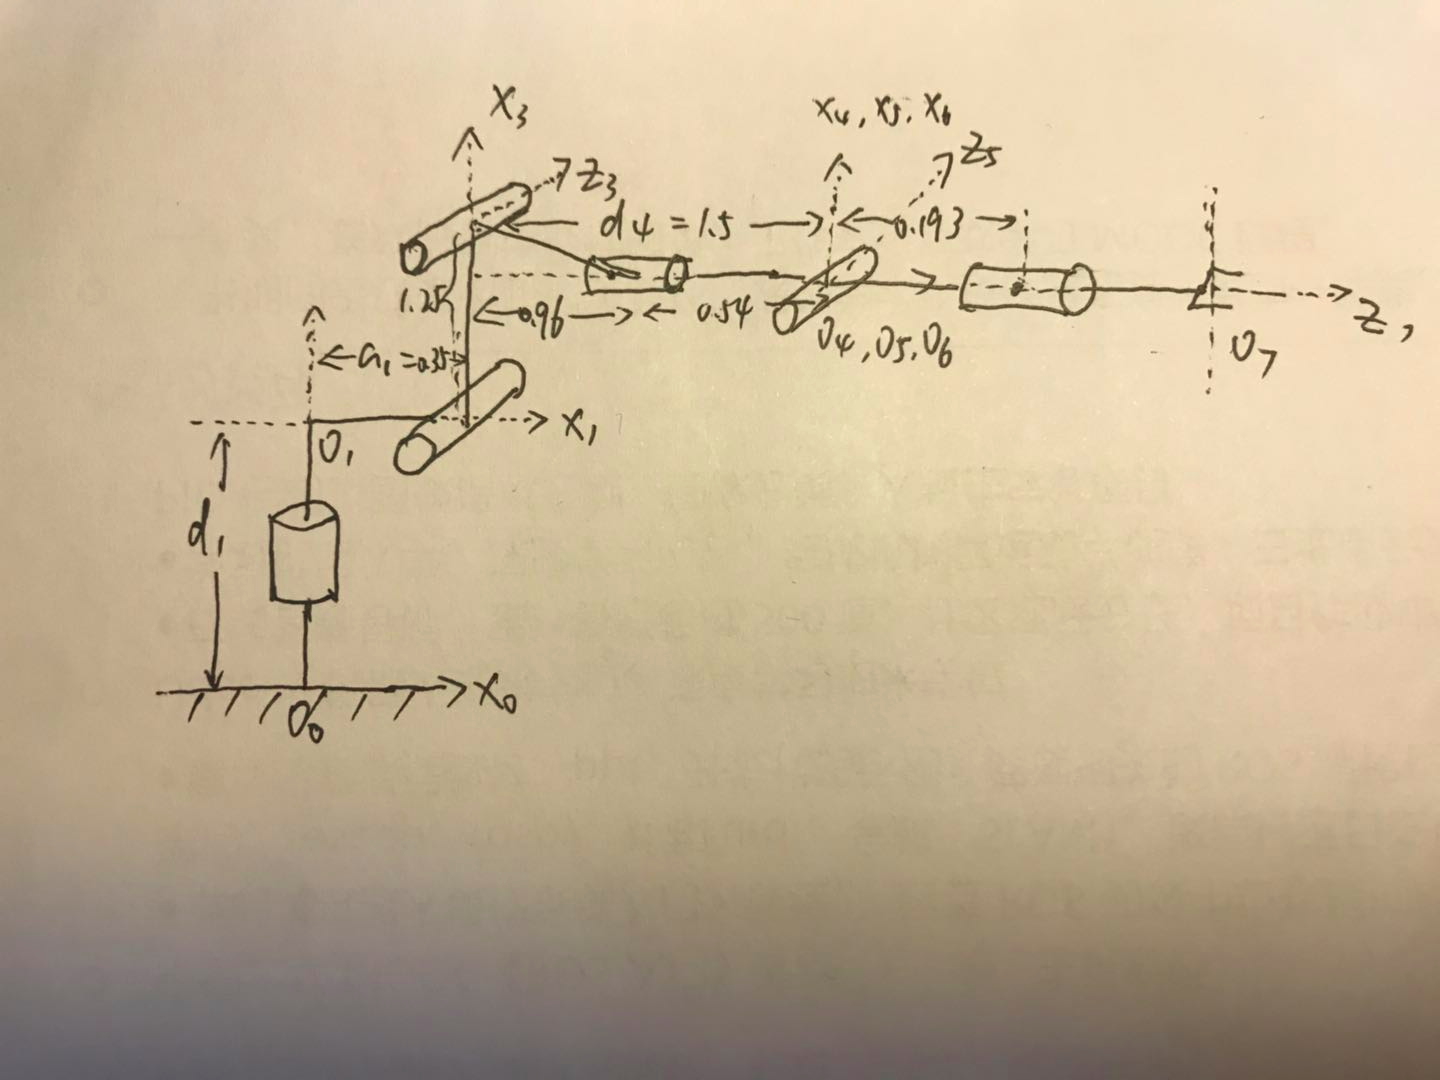 X3
X4, X5, X6
Z3
Z5
d4 = 1.5
0.193
1.25
0.96
0.54
O4, O5, O6
Z7
O7
a1 = 0.35
X1
O1
d1
X0
O0